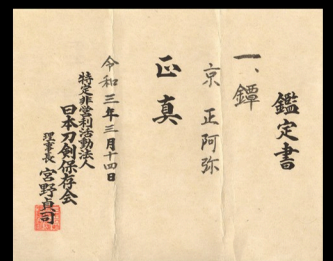 鑑定書
一、鐔
京 正阿弥
正真
令和三年三月十四日
特定非営利活動法人
日本刀剣保存会
理事長 宮野貞司